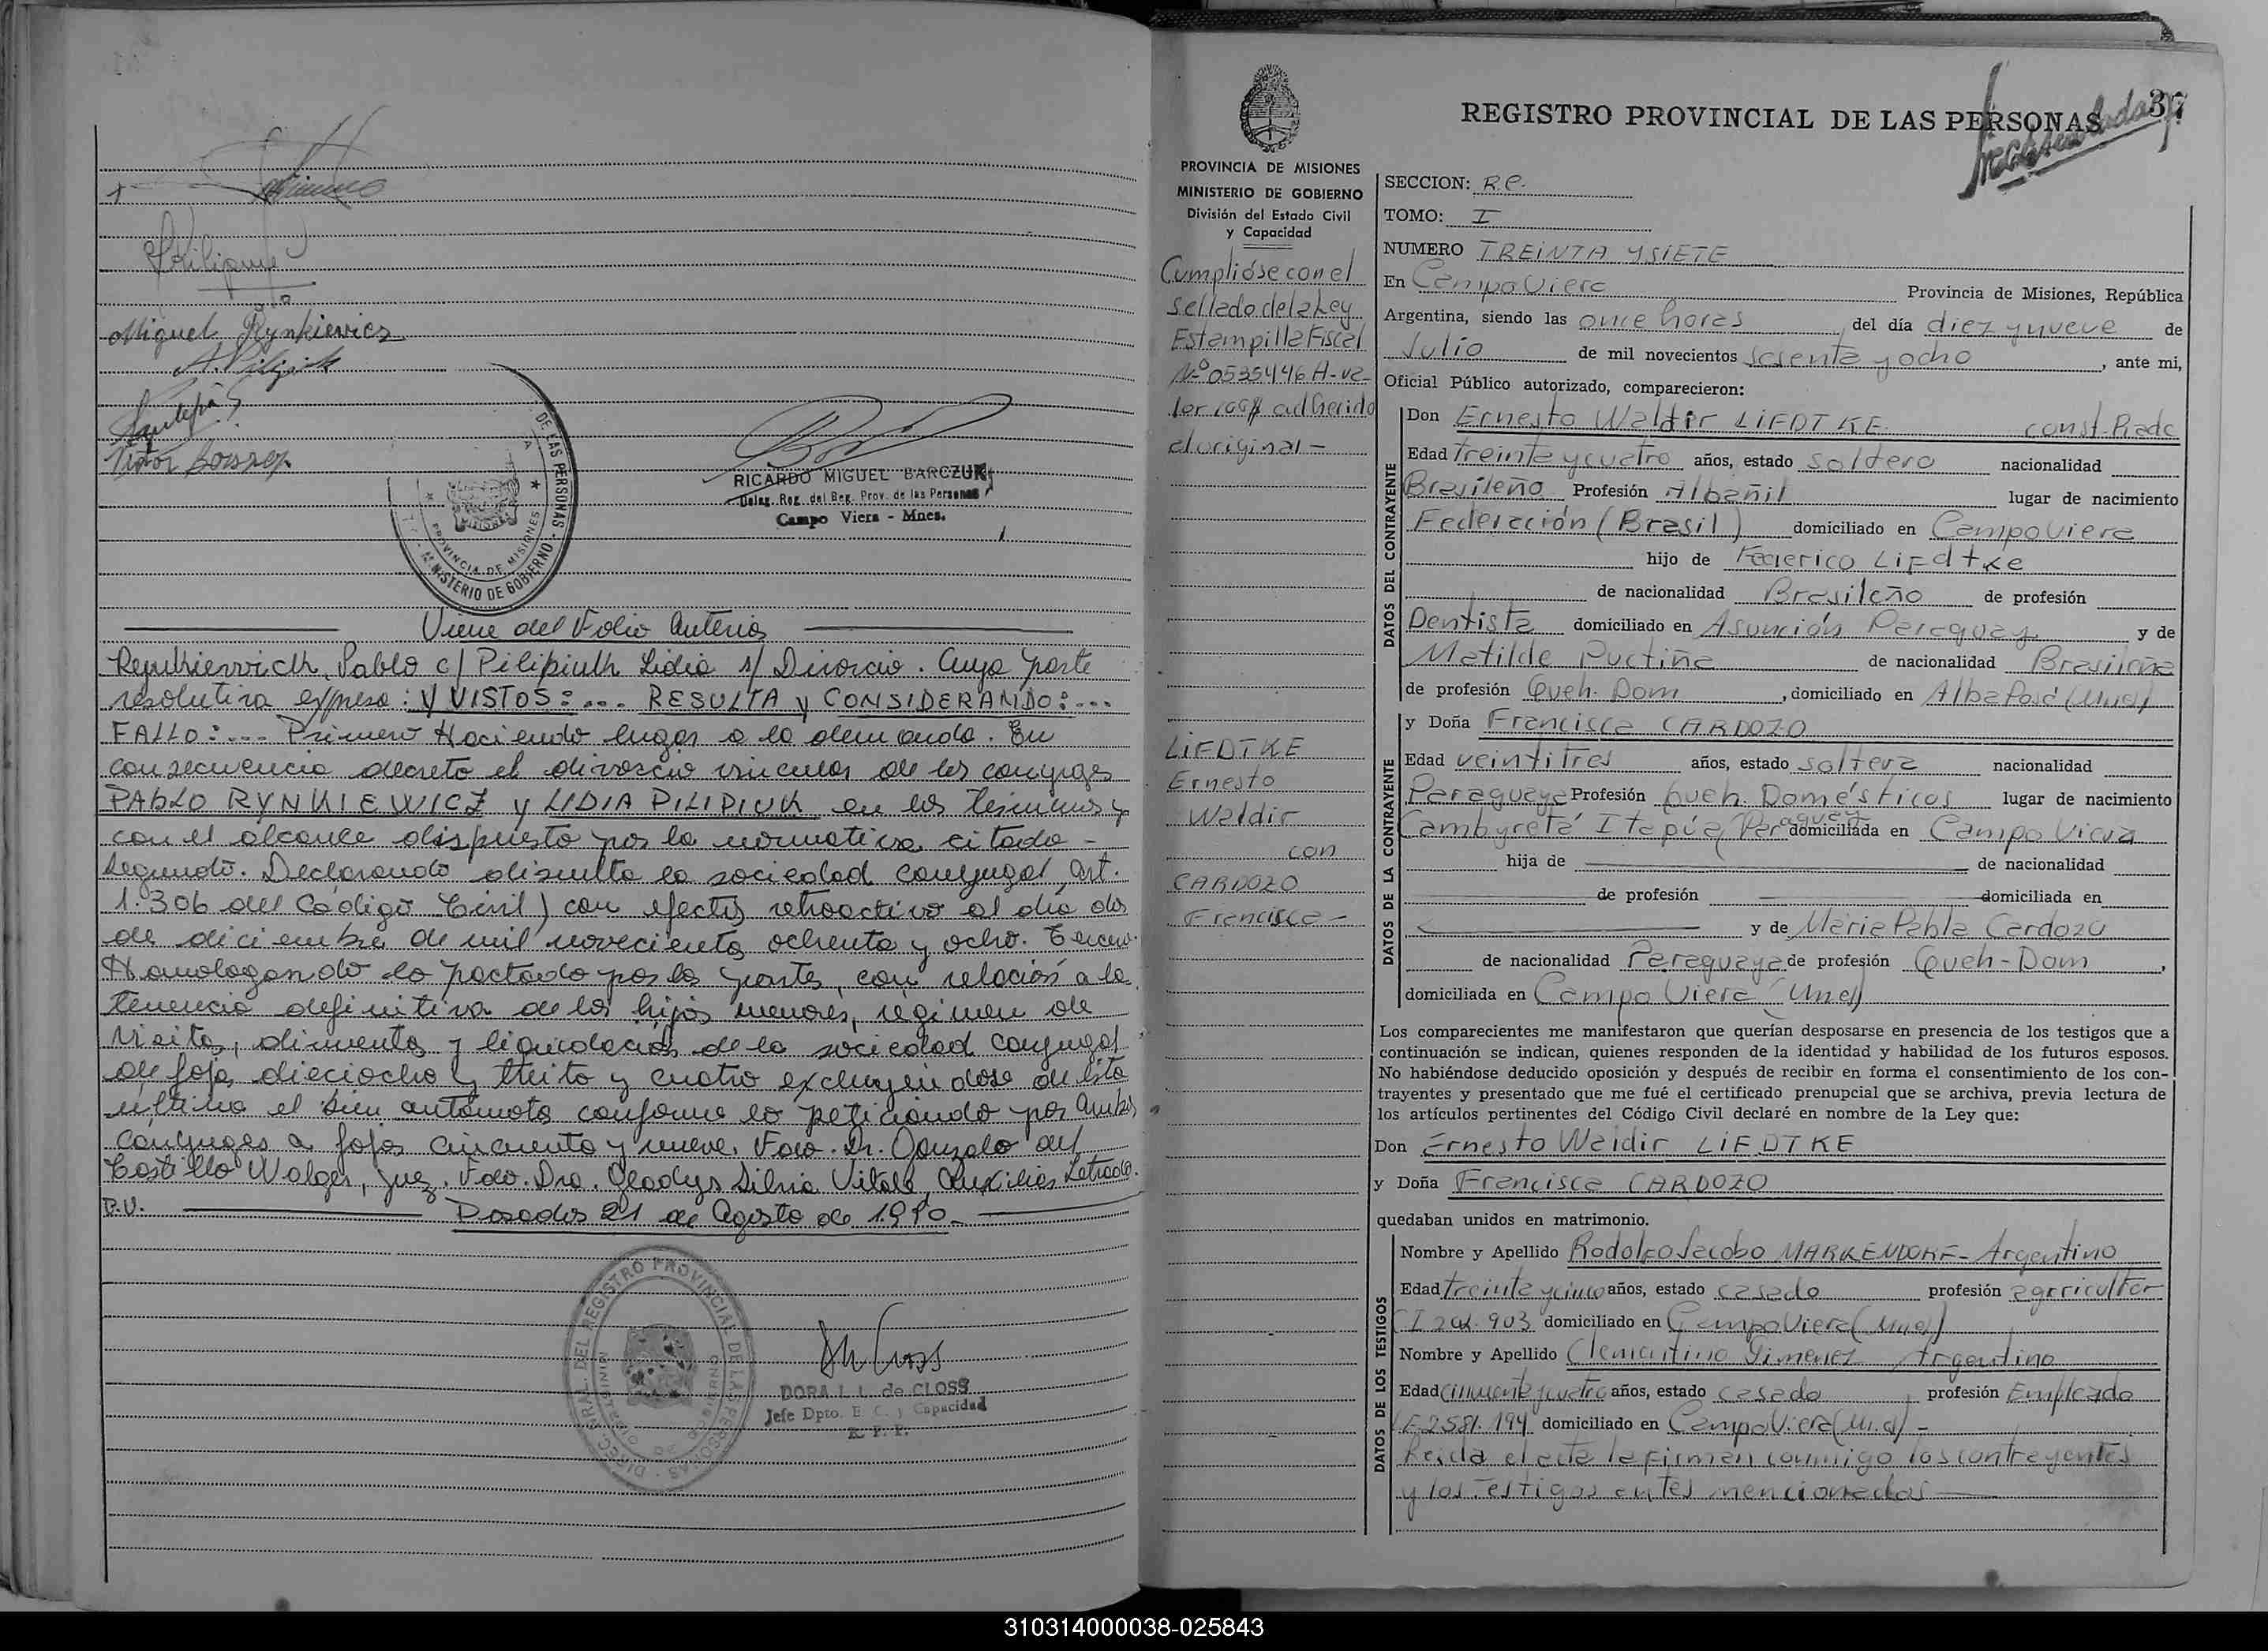 Miguel Rynkiewicz
DE LAS PERSONAS - MINISTERIO DE GOBIERNO
PROVINCIA DE MISIONES
RICARDO MIGUEL BARCZUK
Deleg. Reg. del Reg. Prov. de las Personas
Campo Viera - Mnes.
Viene del Folio Anterior
Pablo c/ Pilipiuk Lidia s/ Divorcio. Cuya parte
resolutiva expresa: Y VISTOS: ... RESULTA y CONSIDERANDO: ...
FALLO: ... Primero Haciendo lugar a la demanda. En
consecuencia decreto el divorcio vincular de los conyuges
PABLO RYNKIEWICZ y LIDIA PILIPIUK en los términos y
con el alcance dispuesto por la normativa citada -
Segundo. Declarando disuelta la sociedad conyugal, art.
1.306 del Código Civil) con efecto retroactivo al dia dos
de diciembre de mil novecientos ochenta y ocho. Tercero.
Homologando lo pactado por las partes, con relación a la
tenencia definitiva de los hijos menores, régimen de
visitas, alimentos y liquidación de la sociedad conyugal
de fojas dieciocho y treinta y cuatro excluyendose de esta
última el bien automotor conforme lo peticionado por ambos
cónyuges a fojas cincuenta y nueve. Fdo. Dr. Gonzalo del
Castillo Walger, Juez. Fdo. Dra. Gladys Silvia Vitale, Auxiliar Letrado.
P.V. Posadas 21 de Agosto de 1.990.-
DIREC. GRAL. DEL REGISTRO PROVINCIAL DE LAS PERSONAS
DORA L. L. de CLOSS
Jefe Dpto. E. C. y Capacidad
R. P. P.
PROVINCIA DE MISIONES
MINISTERIO DE GOBIERNO
División del Estado Civil
y Capacidad
Cumplióse con el
sellado de la Ley
Estampilla Fiscal
Nº 0535446 A-va-
lor 100$ adherido
al original -
LIEDTKE
Ernesto
Waldir
con
CARDOZO
Francisca -
REGISTRO PROVINCIAL DE LAS PERSONAS
37
SECCION: R.C.
TOMO: I
NUMERO TREINTA Y SIETE
En Campo Viera Provincia de Misiones, República
Argentina, siendo las once horas del día diez y nueve de
Julio de mil novecientos sesenta y ocho, ante mi,
Oficial Público autorizado, comparecieron:
DATOS DEL CONTRAYENTE
Don Ernesto Waldir LIEDTKE
Edad treinta y cuatro años, estado soltero nacionalidad
Brasileño Profesión Albañil lugar de nacimiento
Federación (Brasil) domiciliado en Campo Viera
hijo de Federico Liedtke
de nacionalidad Brasileño de profesión
Dentista domiciliado en Asunción Paraguay y de
Matilde Puctiña de nacionalidad Brasileña
de profesión Queh. Dom, domiciliado en Alba Posé (Mnes)
DATOS DE LA CONTRAYENTE
y Doña Francisca CARDOZO
Edad veintitres años, estado soltera nacionalidad
Paraguaya Profesión Queh. Domésticos lugar de nacimiento
Cambyretá Itapúa Paraguay domiciliada en Campo Viera
hija de de nacionalidad
de profesión domiciliada en
y de Maria Pabla Cardozo
de nacionalidad Paraguaya de profesión Queh-Dom,
domiciliada en Campo Viera (Mnes)
Los comparecientes me manifestaron que querían desposarse en presencia de los testigos que a
continuación se indican, quienes responden de la identidad y habilidad de los futuros esposos.
No habiéndose deducido oposición y después de recibir en forma el consentimiento de los con-
trayentes y presentado que me fué el certificado prenupcial que se archiva, previa lectura de
los artículos pertinentes del Código Civil declaré en nombre de la Ley que:
Don Ernesto Waldir LIEDTKE
y Doña Francisca CARDOZO
quedaban unidos en matrimonio.
DATOS DE LOS TESTIGOS
Nombre y Apellido Rodolfo Jacobo MARKENDORF - Argentino
Edad treinta y cinco años, estado casado profesión agricultor
domiciliado en Campo Viera (Mnes)
Nombre y Apellido Clementino Gimenez Argentino
Edad cincuenta y cuatro años, estado casado profesión Empleado
domiciliado en Campo Viera (Mnes) -
Leída el acta la firman conmigo los contrayentes
y los testigos antes mencionados
310314000038-025843